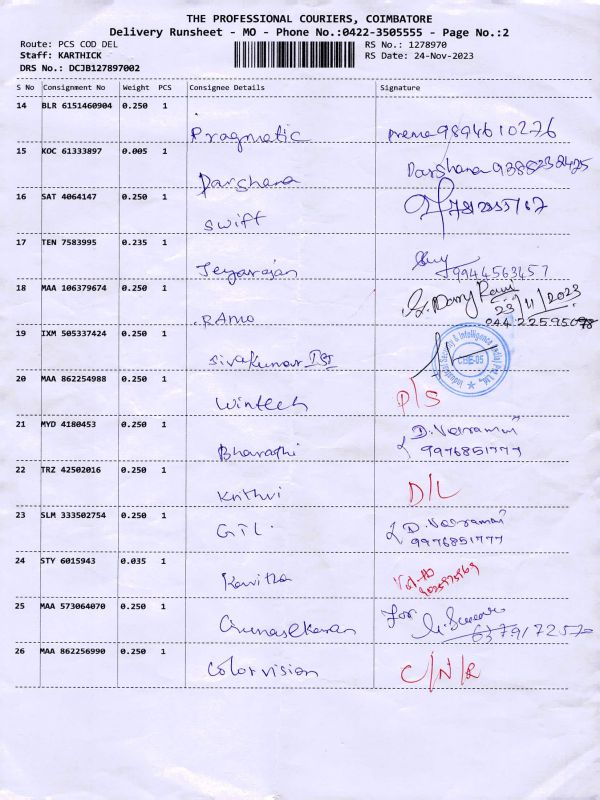 THE PROFESSIONAL COURIERS, COIMBATORE
Delivery Runsheet - MO - Phone No.:0422-3505555 - Page No.:2
Route: PCS COD DEL
RS No.: 1278970
Staff: KARTHICK
RS Date: 24-Nov-2023
DRS No.: DCJB127897002
S No Consignment No Weight PCS Consignee Details Signature
14 BLR 6151460904 0.250 1
Pragmatic prema 9894610276
15 KOC 61333897 0.005 1
Darshana Darshana 9388238425
16 SAT 4064147 0.250 1
Swift
17 TEN 7583995 0.235 1
Jeyarajan 9944563457
18 MAA 106379674 0.250 1
RAMO 23/11/2023
044 22595098
19 IXM 505337424 0.250 1
Sivakumar CBE-05
20 MAA 862254988 0.250 1
Wintech P/S
21 MYD 4180453 0.250 1
Bharathi D. Veeramani
9976851777
22 TRZ 42502016 0.250 1
Krithvi D/L
23 SLM 333502754 0.250 1
GTL D. Veeramani
9976851777
24 STY 6015943 0.035 1
Kavitha
25 MAA 573064070 0.250 1
Gunasekaran for
26 MAA 862256990 0.250 1
Colorvision C/N/R